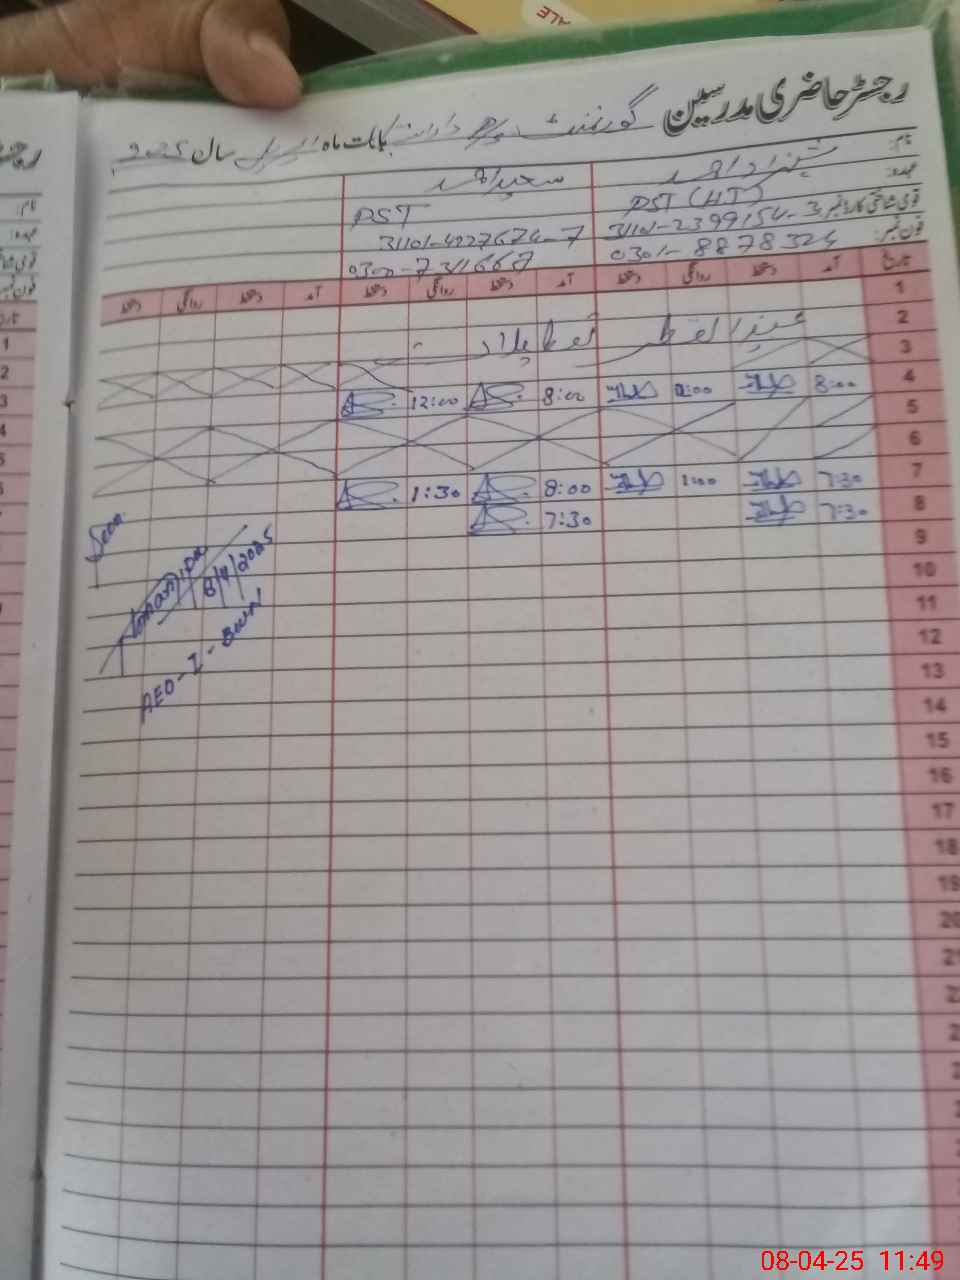 ALE
رجسٹر حاضری مدرسین گورنمنٹ بابت ماہ اپریل سال 2025
نام: شہزاد احمد سعید احمد
عہدہ: PST (HT) PST
قومی شناختی کارڈ نمبر 31101-2399154-3 31101-4227674-7
فون نمبر: 0301-8878324 0300-7311667
تاریخ آمد دستخط روانگی دستخط آمد دستخط روانگی دستخط آمد دستخط روانگی دستخط
1
2 عیدالفطر تعطیلات
3
4 8:00 12:00 8:00 12:00
5
6
7 7:30 1:00 8:00 1:30
8 7:30 7:30
9
10
11
12
13
14
15
16
17
18
19
20
Seen
8/4/2025
AEO-I-BWN
رجسٹر
نام:
عہدہ:
1
2
3
4
08-04-25 11:49